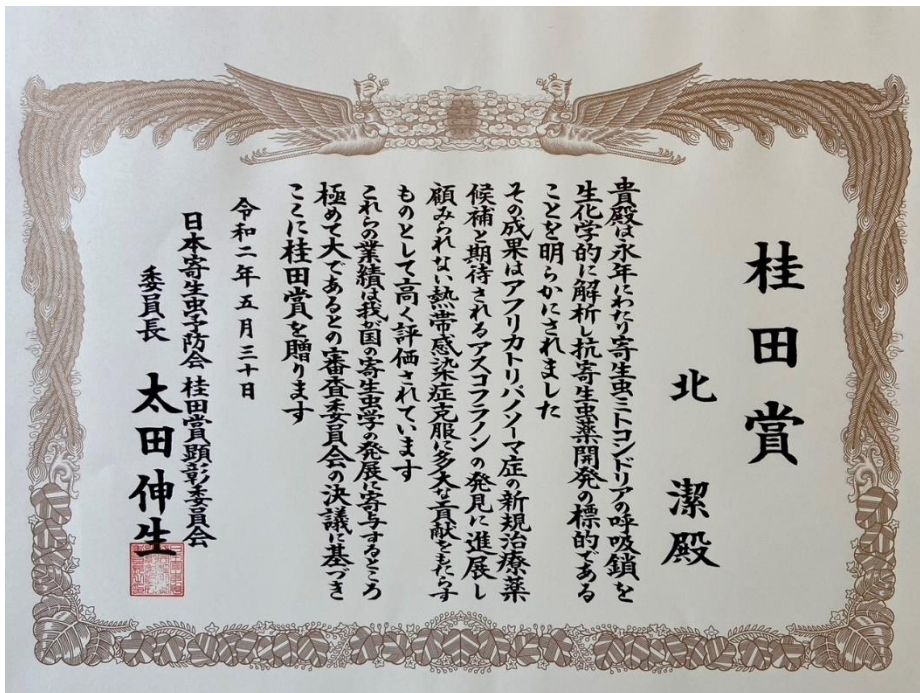 桂田賞
北 潔殿
貴殿は永年にわたり寄生虫ミトコンドリアの呼吸鎖を
生化学的に解析し抗寄生虫薬開発の標的である
ことを明らかにされました
その成果はアフリカトリパノソーマ症の新規治療薬
候補と期待されるアスコフラノンの発見に進展し
顧みられない熱帯感染症克服に多大な貢献をもたらす
ものとして高く評価されています
これらの業績は我が国の寄生虫学の発展に寄与するところ
極めて大であるとの審査委員会の決議に基づき
ここに桂田賞を贈ります
令和二年五月三十日
日本寄生虫予防会 桂田賞顕彰委員会
委員長 太田伸生